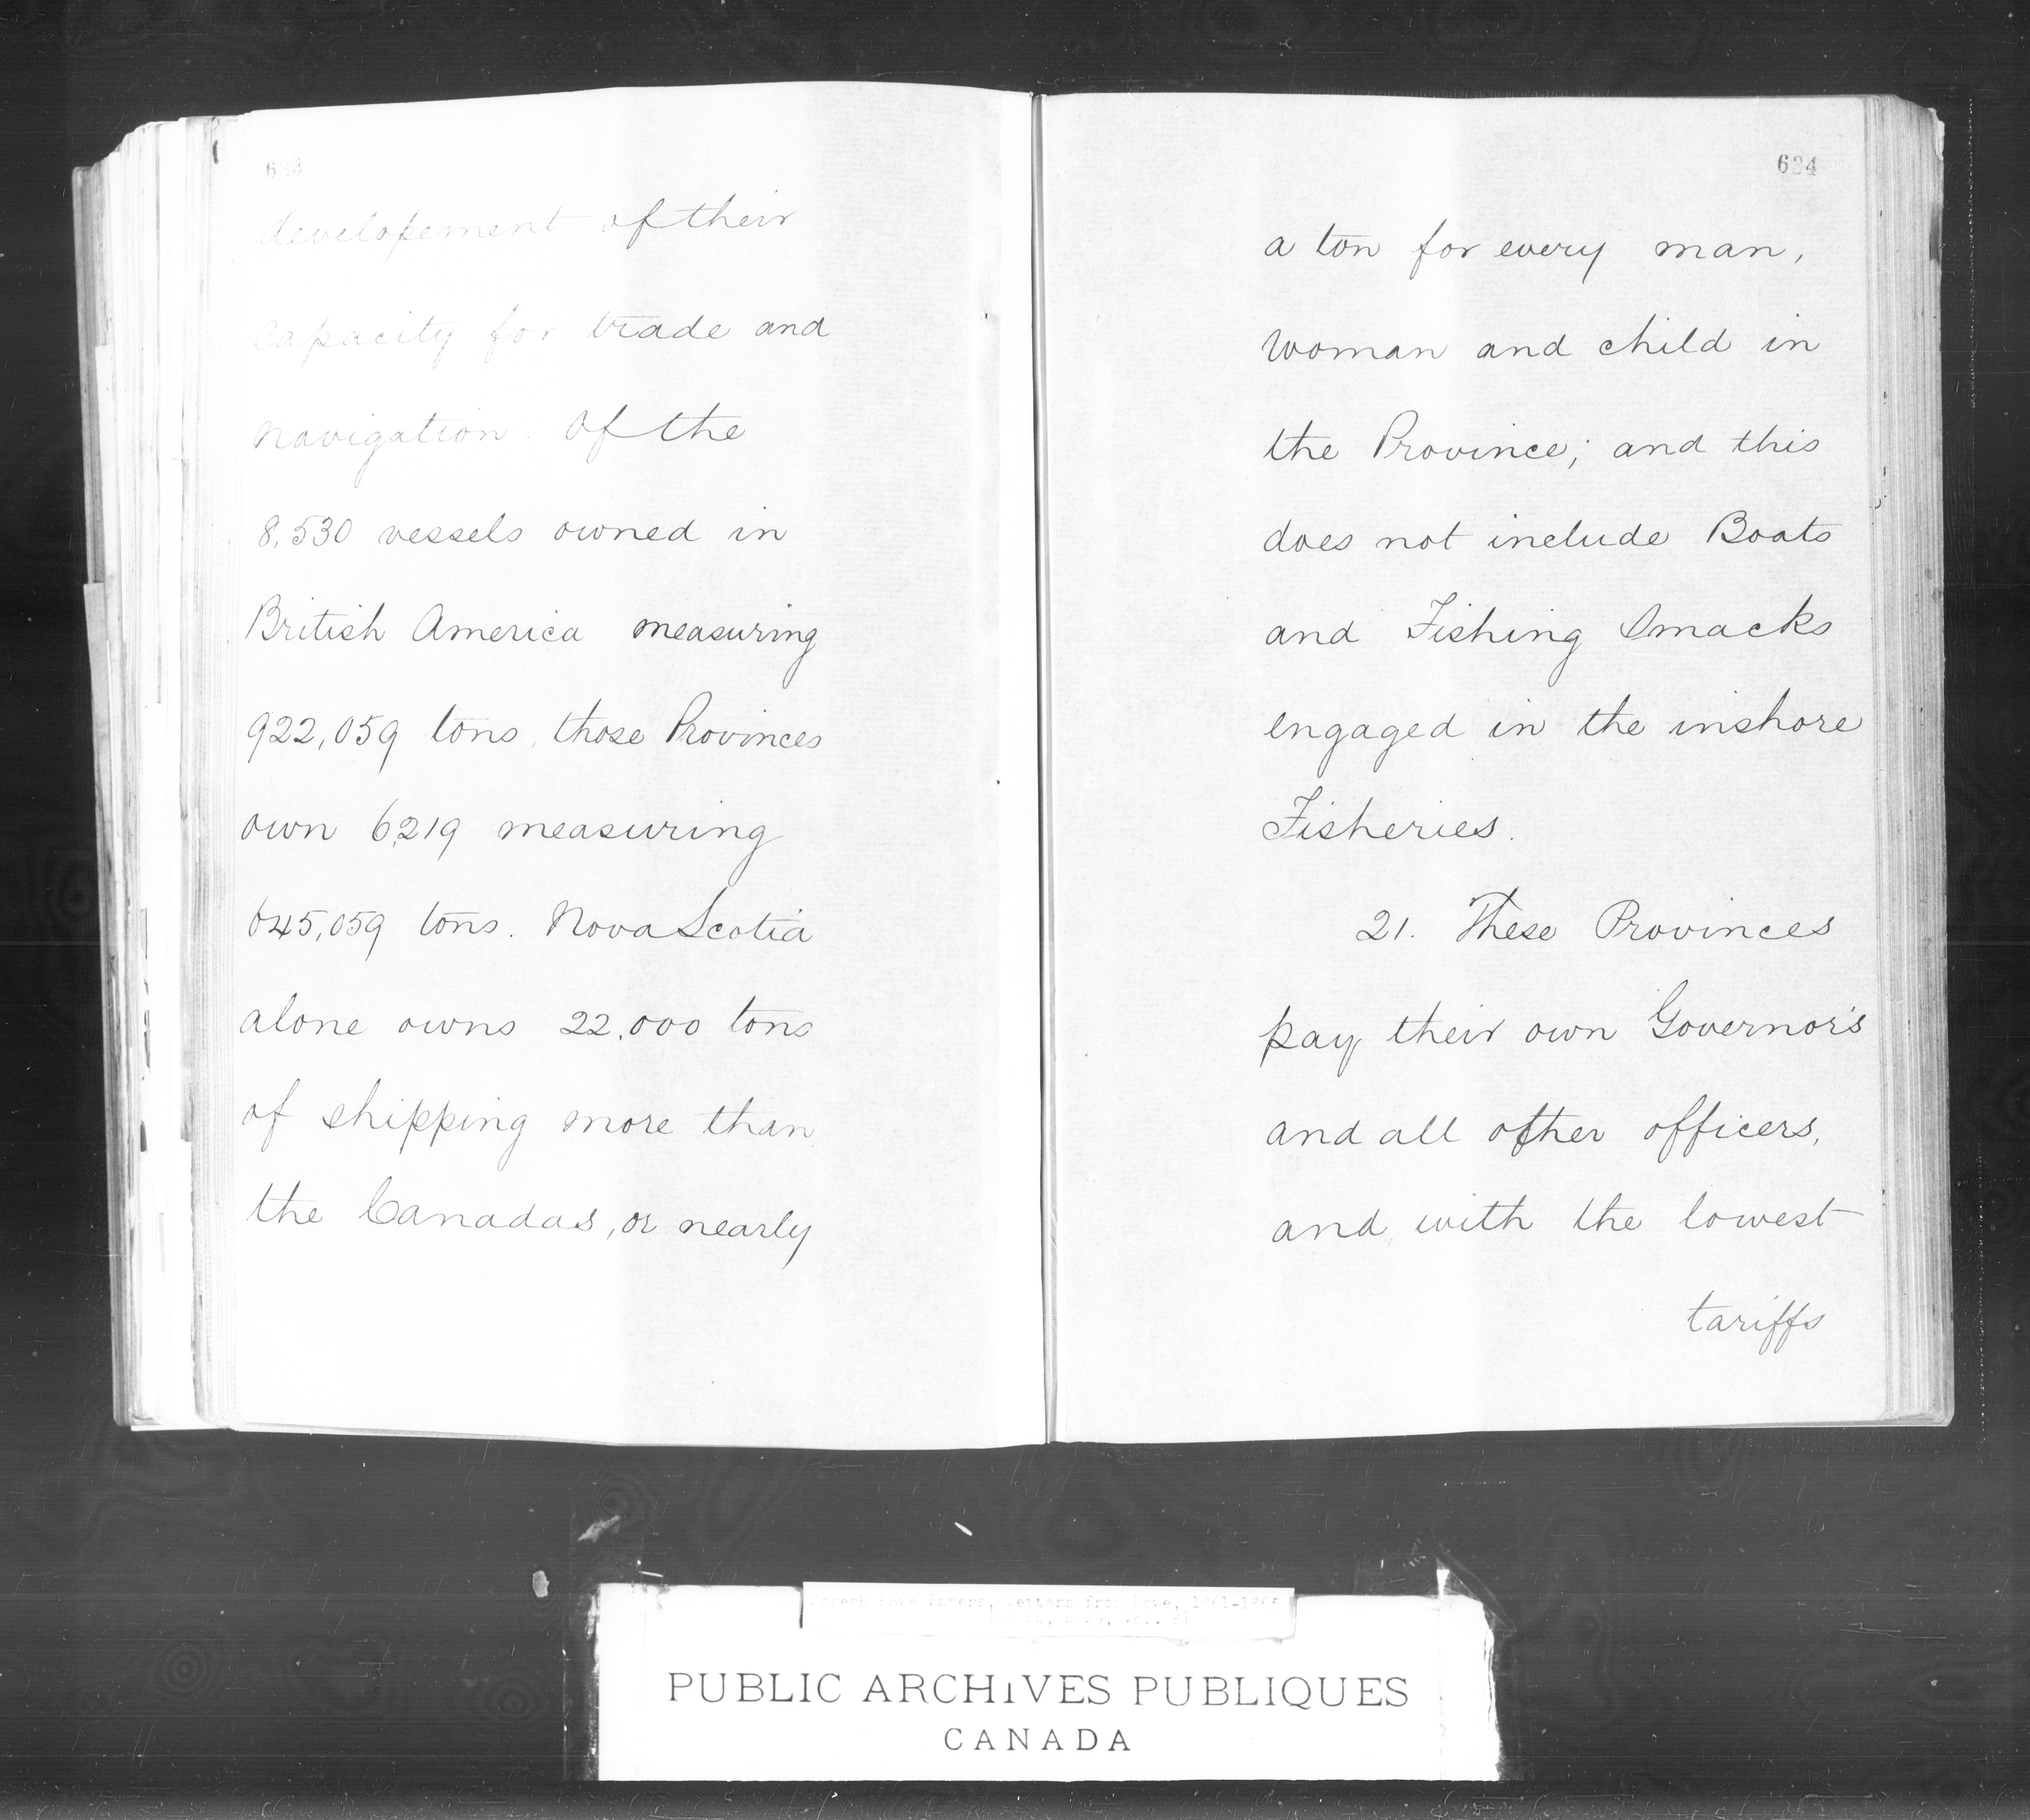 633
developement of their
capacity for trade and
navigation. Of the
8,530 vessels owned in
British America measuring
922,059 tons, those Provinces
own 6,219 measuring
645,059 tons. Nova Scotia
alone owns 22,000 tons
of shipping more than
the Canadas, or nearly
634
a ton for every man,
woman and child in
the Province; and this
does not include Boats
and Fishing Smacks
engaged in the inshore
Fisheries.
21. These Provinces
pay their own Governor's
and all other officers,
and with the lowest
tariffs
Joseph Howe Papers, Letters from Howe, 1861-1865
PUBLIC ARCHIVES PUBLIQUES
CANADA